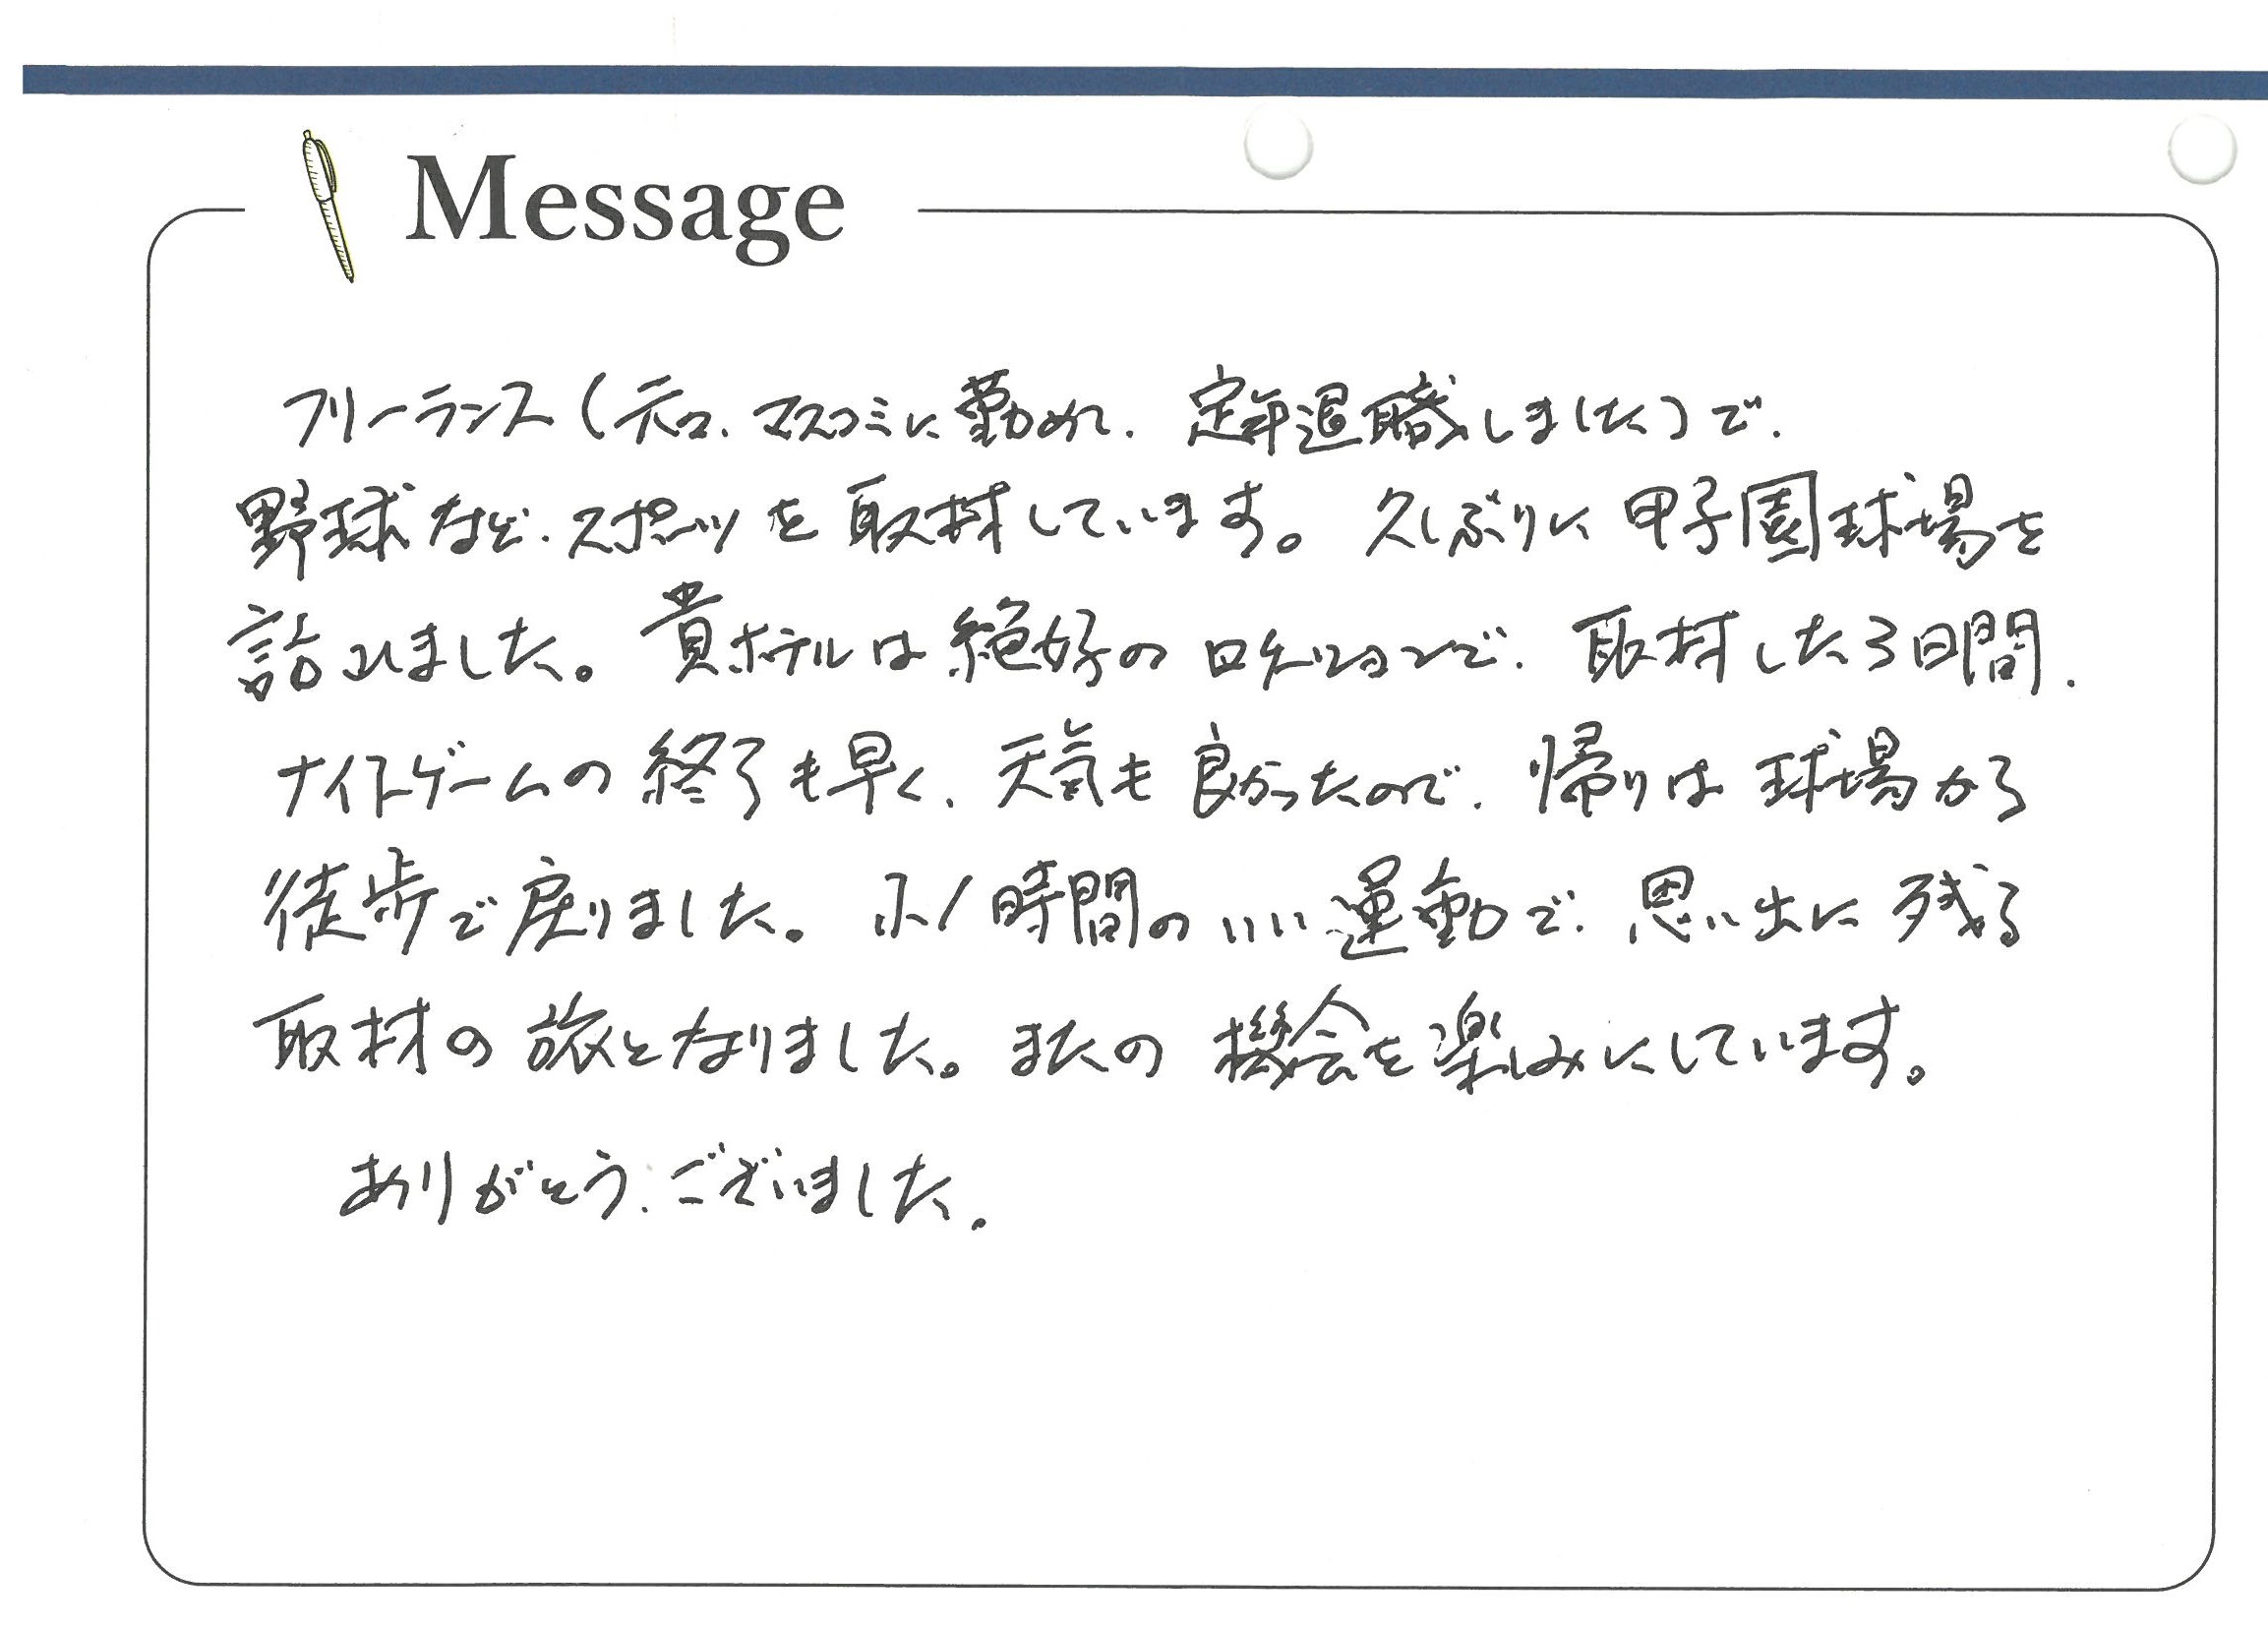 Message
フリーランス(元々、マスコミに勤めれ、定年退職しました)で、
野球など、スポーツを取材しています。久しぶりに甲子園球場を
訪れました。貴ホテルは絶好のロケーションで、取材した3日間、
ナイトゲームの終了も早く、天気も良かったので、帰りは球場から
徒歩で戻りました。小1時間のいい運動で、思い出に残る
取材の旅となりました。またの機会を楽しみにしています。
ありがとう、ございました。